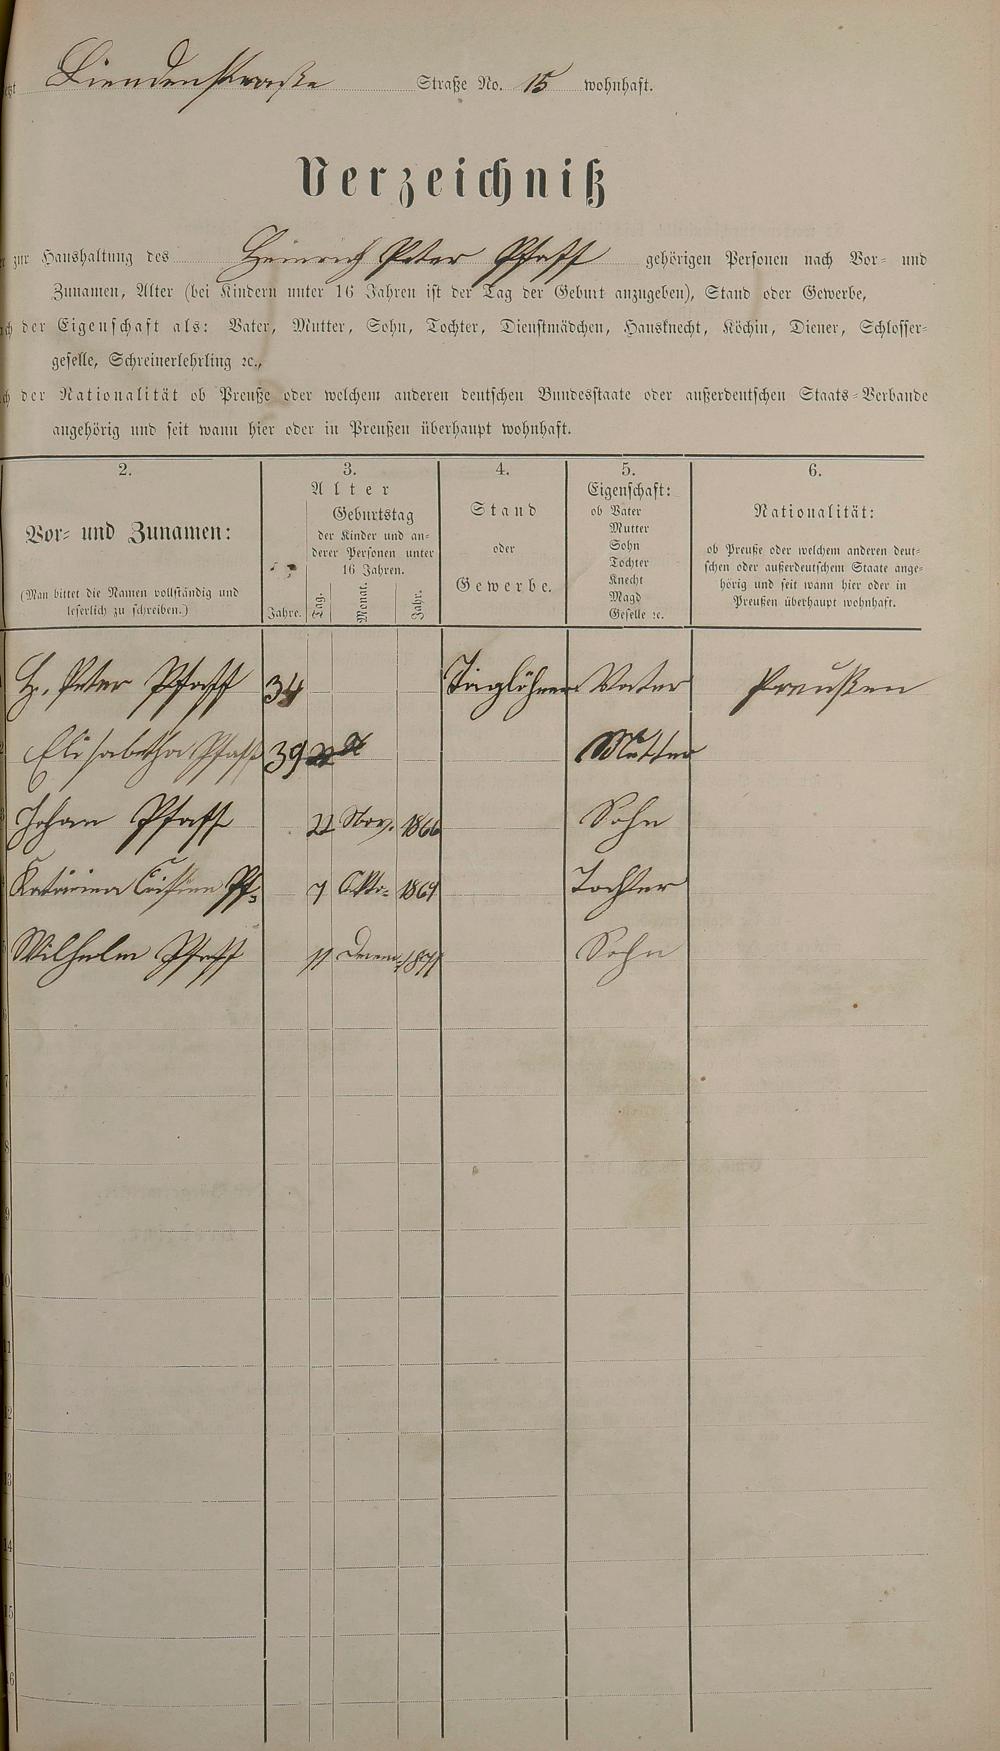 Liendenstraße Straße No. 15 wohnhaft.
Verzeichniß
zur Haushaltung des Heinrich Peter Pfaff gehörigen Personen nach Vor- und
Zunamen, Alter (bei Kindern unter 16 Jahren ist der Tag der Geburt anzugeben), Stand oder Gewerbe,
der Eigenschaft als: Vater, Mutter, Sohn, Tochter, Dienstmädchen, Hausknecht, Köchin, Diener, Schlosser-
geselle, Schreinerlehrling ꝛc.,
der Nationalität ob Preuße oder welchem anderen deutschen Bundesstaate oder außerdeutschen Staats-Verbande
angehörig und seit wann hier oder in Preußen überhaupt wohnhaft.
2. 3. 4. 5. 6.
Vor- und Zunamen:
(Man bittet die Namen vollständig und
leserlich zu schreiben.)
Alter
Geburtstag
der Kinder und an-
derer Personen unter
16 Jahren.
Jahre. Tag. Monat. Jahr.
Stand
oder
Gewerbe.
Eigenschaft:
ob Vater
Mutter
Sohn
Tochter
Knecht
Magd
Geselle ꝛc.
Nationalität:
ob Preuße oder welchem anderen deut-
schen oder außerdeutschem Staate ange-
hörig und seit wann hier oder in
Preußen überhaupt wohnhaft.
H. Peter Pfaff 34 Taglöhner Vater Preußen
Elisabetha Pfaff 39 Mutter
Johan Pfaff 22 Nov. 1866
Sohn
Katarina Cristina Pf. 7 Okto. 1869 Tochter
Wilhelm Pfaff 11 1871 Sohn
7
8
9
10
11
12
13
14
15
16